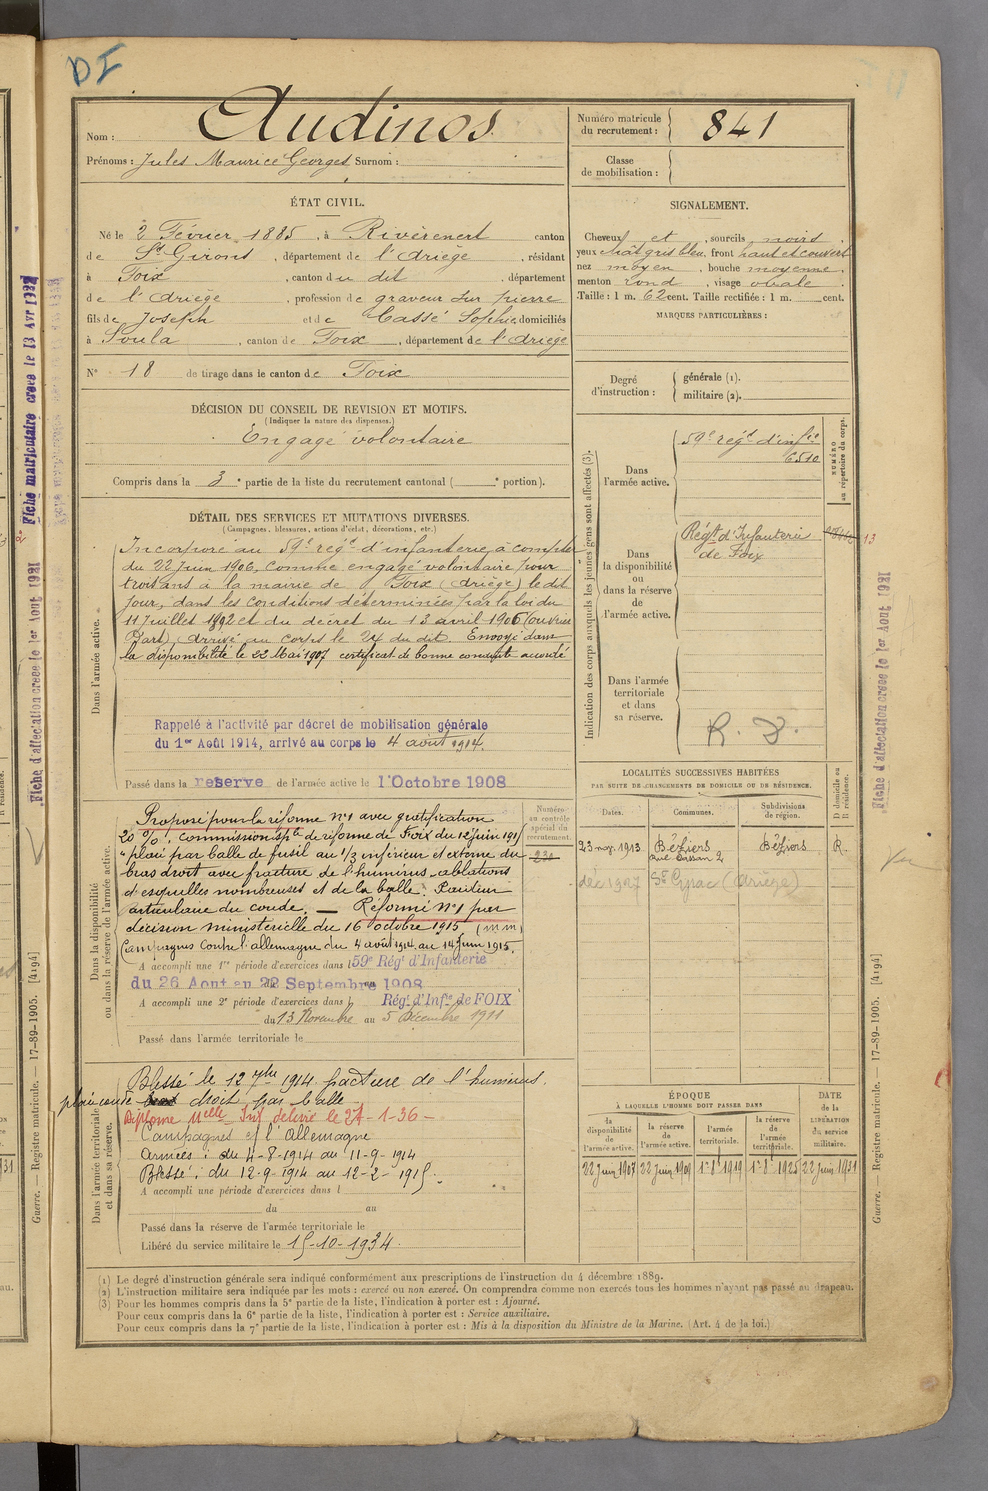 DI
Nom : Audinos
Prénoms : Jules Maurice Georges Surnom :
Numéro matricule du recrutement : 841
Classe de mobilisation :
ÉTAT CIVIL.
Né le 2 Février 1885, à Rivèrenert canton
de St Girons, département de l'Ariège, résidant
à Foix, canton du dit, département
de l'Ariège, profession de graveur sur pierre
fils de Joseph et de Cassé Sophie domiciliés
à Soula, canton de Foix, département de l'Ariège
N° 18 de tirage dans le canton de Foix
SIGNALEMENT.
Cheveux et, sourcils noirs
yeux chât gris bleu, front haut et couvert
nez moyen, bouche moyenne,
menton rond, visage ovale.
Taille : 1 m. 62 cent. Taille rectifiée : 1 m. cent.
MARQUES PARTICULIÈRES :
Degré d'instruction : générale (1).
militaire (2).
DÉCISION DU CONSEIL DE REVISION ET MOTIFS.
(Indiquer la nature des dispenses.)
Engagé volontaire
Compris dans la 3e partie de la liste du recrutement cantonal ( e portion).
DÉTAIL DES SERVICES ET MUTATIONS DIVERSES.
(Campagnes, blessures, actions d'éclat, décorations, etc.)
Dans l'armée active.
Incorporé au 59e régt d'infanterie, à compter
du 22 Juin 1906, comme engagé volontaire pour
trois ans à la mairie de Foix (Ariège) le dit
jour, dans les conditions déterminées par la loi du
11 Juillet 1892 et du décret du 13 avril 1906
Arrivé au corps le 24 du dit. Envoyé dans
la disponibilité le 22 Mai 1907 certificat de bonne conduite accordé
Rappelé à l'activité par décret de mobilisation générale
du 1er Août 1914, arrivé au corps le 4 août 1914.
Passé dans la reserve de l'armée active le 1'Octobre 1908
Indication des corps auxquels les jeunes gens sont affectés (3).
NUMÉRO au répertoire du corps.
Dans l'armée active.
59e régt d'infie
6510
Dans la disponibilité ou dans la réserve de l'armée active.
Régt d'Infanterie
de Foix
13
Dans l'armée territoriale et dans sa réserve.
R. D.
Dans la disponibilité ou dans la réserve de l'armée active.
Numéro au contrôle spécial du recrutement.
231
Proposé pour la réforme n°1 avec gratification
20 %. Commission sple de réforme de Foix du 12 juin 1915
"plaie par balle de fusil au 1/3 inférieur et externe du
bras droit avec fracture de l'humérus, ablations
d'esquilles nombreuses et de la balle. Raideur
articulaire du coude. — Réformé N°1 par
décision ministérielle du 16 octobre 1915 (m m)
Campagnes Contre l'allemagne du 4 août 1914 au 14 Juin 1915.
A accompli une 1re période d'exercices dans l 59e Régt d'Infanterie
du 26 Aout au 22 Septembre 1908
A accompli une 2e période d'exercices dans l Régt d'Infie de FOIX
du 13 Novembre au 5 Décembre 1911
Passé dans l'armée territoriale le
LOCALITÉS SUCCESSIVES HABITÉES
PAR SUITE DE CHANGEMENTS DE DOMICILE OU DE RÉSIDENCE.
Dates. Communes. Subdivisions de région. D domicile ou R résidence.
23 nov. 1913 Béziers Béziers R.
déc 1927 St Cyrac (Ariège)
Vu
Dans l'armée territoriale et dans sa réserve.
Blessé le 12 7bre 1914 fracture de l'humérus.
plaie coude droit par balle
Diplome Melle Inf délivré le 27-1-36 -
Campagnes c/ l'Allemagne
Armées : du 4-8-1914 au 11-9-1914
Blessé : du 12-9-1914 au 12-2-1915.
A accompli une période d'exercices dans l
du au
Passé dans la réserve de l'armée territoriale le
Libéré du service militaire le 15-10-1934.
ÉPOQUE
À LAQUELLE L'HOMME DOIT PASSER DANS
DATE de la LIBÉRATION du service militaire.
la disponibilité de l'armée active. la réserve de l'armée active. l'armée territoriale. la réserve de l'armée territoriale.
22 Juin 1907 22 Juin 1909 1er 8 1919 1er 8 1925 22 Juin 1931
(1) Le degré d'instruction générale sera indiqué conformément aux prescriptions de l'instruction du 4 décembre 1889.
(2) L'instruction militaire sera indiquée par les mots : exercé ou non exercé. On comprendra comme non exercés tous les hommes n'ayant pas passé au drapeau.
(3) Pour les hommes compris dans la 5e partie de la liste, l'indication à porter est : Ajourné.
Pour ceux compris dans la 6e partie de la liste, l'indication à porter est : Service auxiliaire.
Pour ceux compris dans la 7e partie de la liste, l'indication à porter est : Mis à la disposition du Ministre de la Marine. (Art. 4 de la loi.)
Fiche matriculaire creee le 13 Avr 1932
Fiche d'affectation creee le 1er Aout 1921
Guerre. — Registre matricule. — 17-89-1905. [4194]
Fiche d'affectation creee le 1er Aout 1921
Guerre. — Registre matricule. — 17-89-1905. [4194]